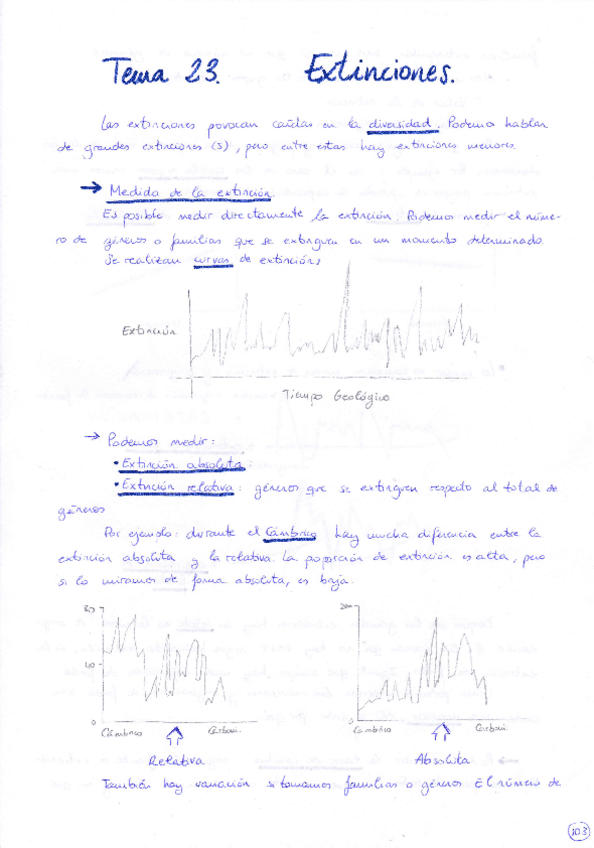 Tema 23. Extinciones.
Las extinciones provocan caídas en la diversidad. Podemos hablar
de grandes extinciones (5), pero entre estas hay extinciones menores.
→ Medida de la extinción
Es posible medir directamente la extinción. Podemos medir el núme-
ro de géneros o familias que se extinguen en un momento determinado.
Se realizan curvas de extinción:
Extinción
Tiempo Geológico
→ Podemos medir:
• Extinción absoluta:
• Extinción relativa: géneros que se extinguen respecto al total de
géneros
Por ejemplo: durante el Cámbrico hay mucha diferencia entre la
extinción absoluta y la relativa. La proporción de extinción es alta, pero
si lo miramos de forma absoluta, es baja.
0
0
Cámbrico
Cámbrico
Relativa
Absoluta
También hay variación si tomamos familias o géneros. El número de
103